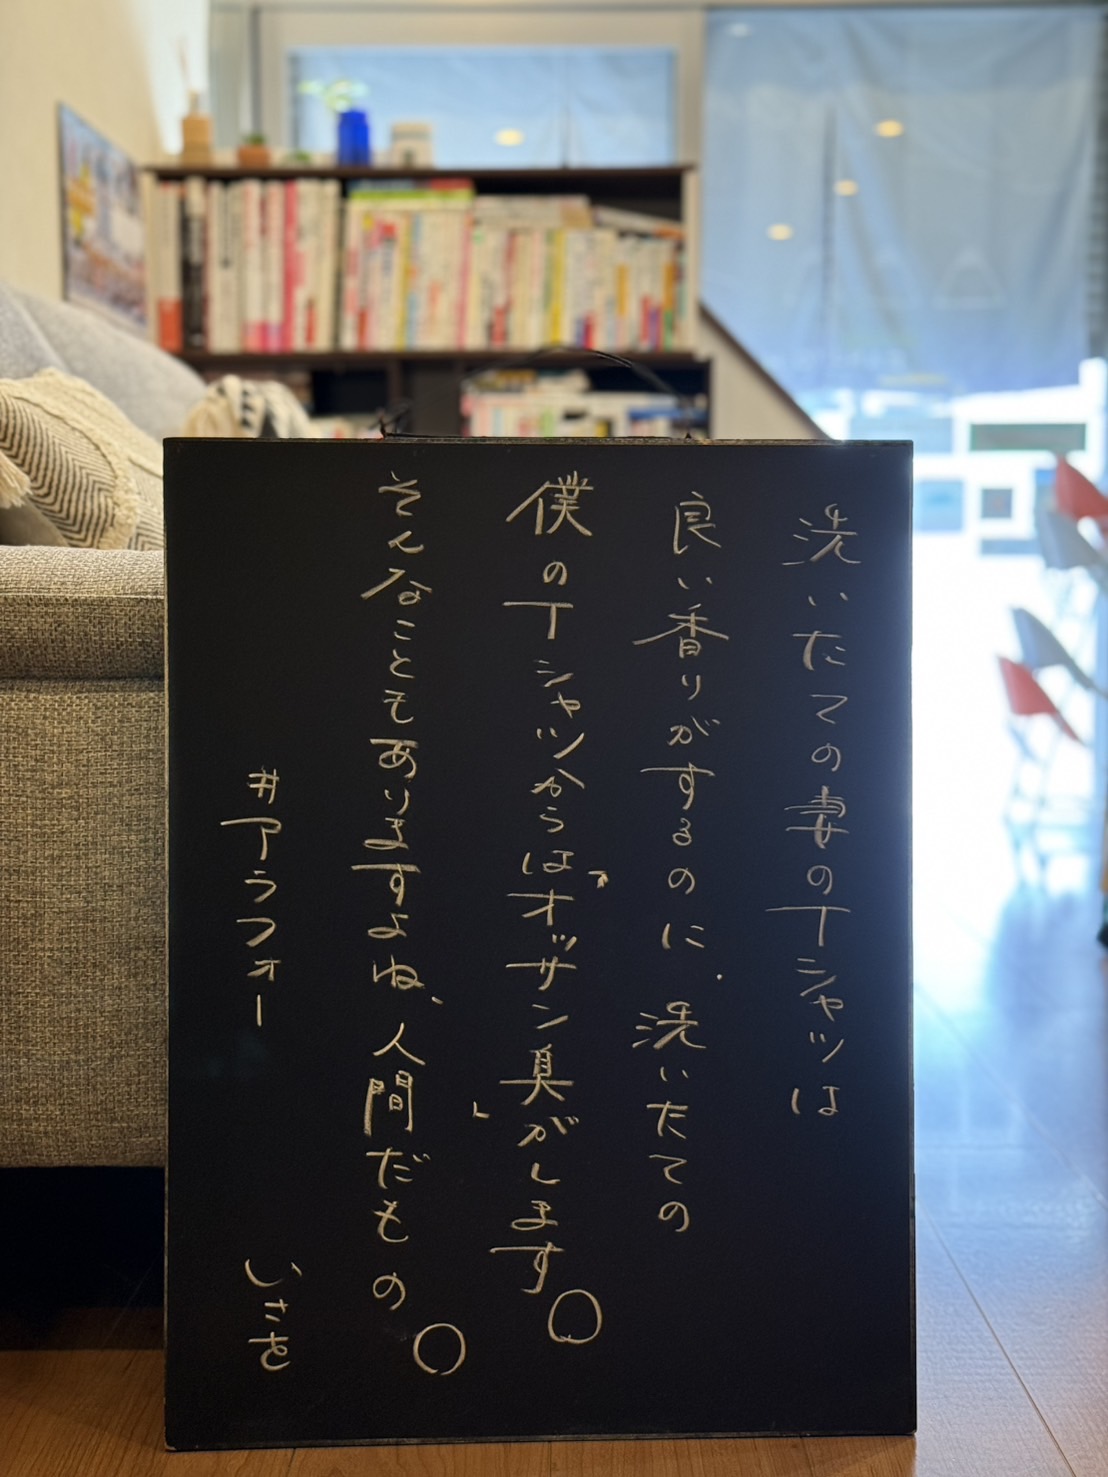 洗いたての妻のTシャツは
良い香りがするのに、洗いたての
僕のTシャツからは「オッサン臭」がします。
そんなこともありますよね、人間だもの。
#アラフォー
いさを